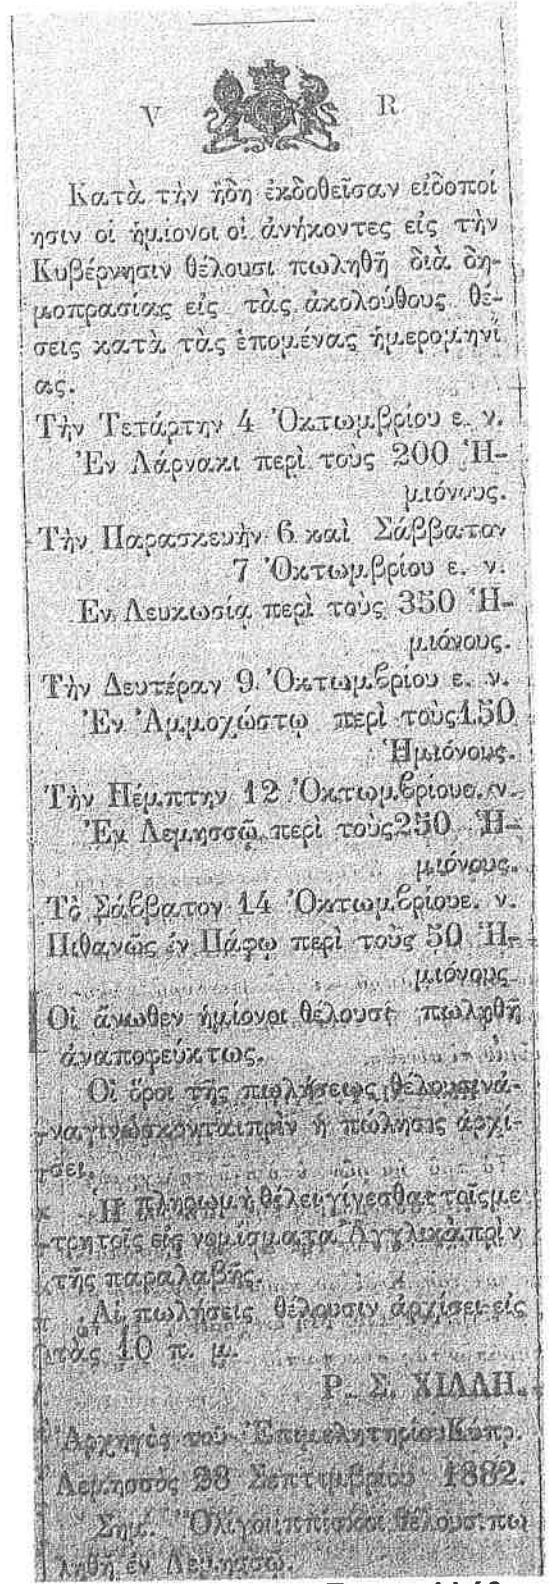 V R
Κατὰ τὴν ἤδη ἐκδοθεῖσαν εἰδοποί
ησιν οἱ ἡμίονοι οἱ ἀνήκοντες εἰς τὴν
Κυβέρνησιν θέλουσι πωληθῆ διὰ δη-
μοπρασίας εἰς τὰς ἀκολούθους θέ-
σεις κατὰ τὰς ἑπομένας ἡμερομηνί
ας.
Τὴν Τετάρτην 4 Ὀκτωμβρίου ε. ν.
Ἐν Λάρνακι περὶ τοὺς 200 Ἡ-
μιόνους.
Τὴν Παρασκευὴν 6 καὶ Σάββατον
7 Ὀκτωμβρίου ε. ν.
Ἐν Λευκωσίᾳ περὶ τοὺς 350 Ἡ-
μιόνους.
Τὴν Δευτέραν 9 Ὀκτωμβρίου ε. ν.
Ἐν Ἀμμοχώστῳ περὶ τοὺς 150
Ἡμιόνους.
Τὴν Πέμπτην 12 Ὀκτωμβρίου ε. ν.
Ἐν Λεμησσῷ περὶ τοὺς 250 Ἡ-
μιόνους.
Τὸ Σάββατον 14 Ὀκτωμβρίου ε. ν.
Πιθανῶς ἐν Πάφῳ περὶ τοὺς 50 Ἡ-
μιόνους
Οἱ ἄνωθεν ἡμίονοι θέλουσι πωληθῆ
ἀναποφεύκτως.
Οἱ ὅροι τῆς πωλήσεως θέλουσιν ἀ-
ναγινώσκονται πρὶν ἡ πώλησις ἀρχί-
σει.
Ἡ πληρωμὴ θέλει γίνεσθαι τοῖς με
τρητοῖς εἰς νομίσματα Ἀγγλικὰ πρὶν
τῆς παραλαβῆς.
Αἱ πωλήσεις θέλουσιν ἀρχίσει εἰς
τὰς 10 π. μ.
Ρ. Σ. ΧΙΛΛΗ.
Ἀρχηγὸς τοῦ Ἐπιμελητηρίου Κύπρ.
Λεμησσὸς 28 Σεπτεμβρίου 1882.
Σημ. Ὀλίγοι ἱππίσκοι θέλουσι πω
ληθῆ ἐν Λεμησσῷ.